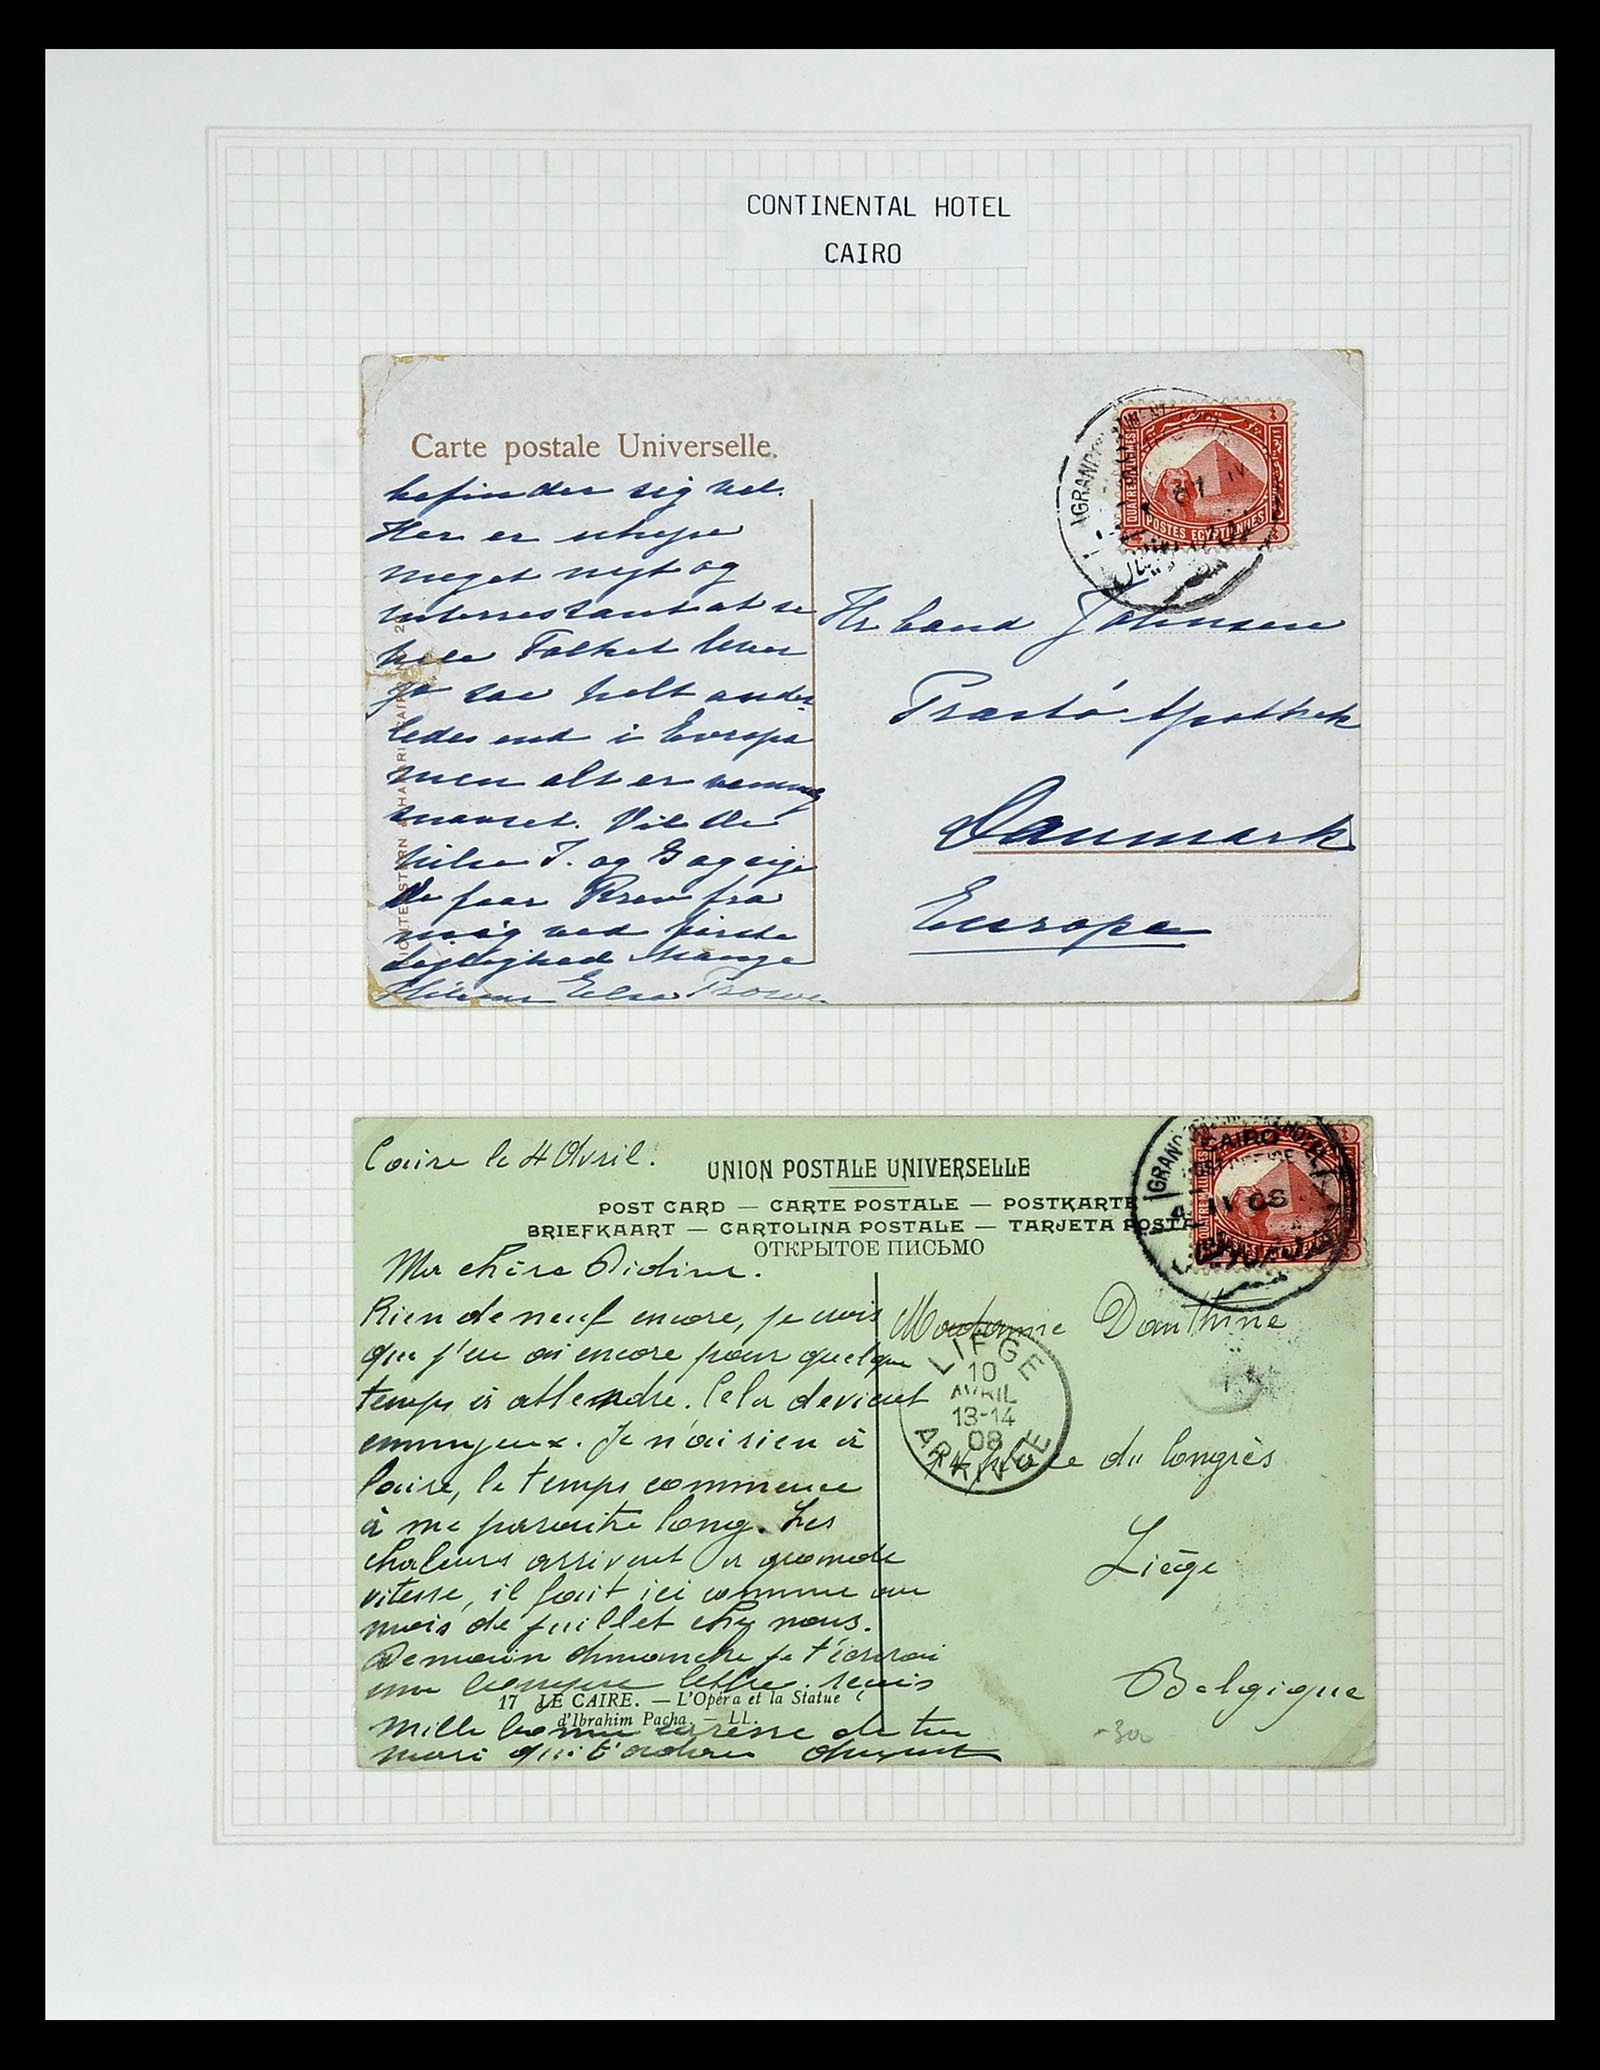 CONTINENTAL HOTEL
CAIRO
Carte postale Universelle.
befinder sig vel.
Her er uhyre
meget nyt og
interressant at se
hele Folket lever
jo saa helt ander-
ledes end i Evropa
men alt er
Vil De
hilse J. og G og sige
De faar Brev fra
mig ved første
Lejlighed Mange
Hilsner Elsa
Hr cand Johnsen
Præstö Apothek
Danmark
Europa
QUATRE MILLIEMES
POSTES EGYPTIENNES
GRAND
IV
Caire le 4 Avril.
UNION POSTALE UNIVERSELLE
POST CARD — CARTE POSTALE — POSTKARTE
BRIEFKAART — CARTOLINA POSTALE — TARJETA POSTA
ОТКРЫТОЕ ПИСЬМО
GRAND HOTEL
CAIRO
IV 08
Ma chère Didine.
Rien de neuf encore, je crois
que j'en ai encore pour quelque
temps à attendre. Cela devient
ennuyeux. Je n'ai rien à
faire, le temps commence
à me paraitre long. Les
chaleurs arrivent à grande
vitesse, il fait ici comme au
mois de juillet chez nous.
Demain dimanche je t'écrirai
une longue lettre. reçois
17 LE CAIRE. — L'Opéra et la Statue
d'Ibrahim Pacha. — LL.
Mille de ton
mari qui t'adore
Madame Danthine
LIÈGE
10
AVRIL
13-14
08
ARRIVÉE
place du Congrès
Liège
Belgique
-300